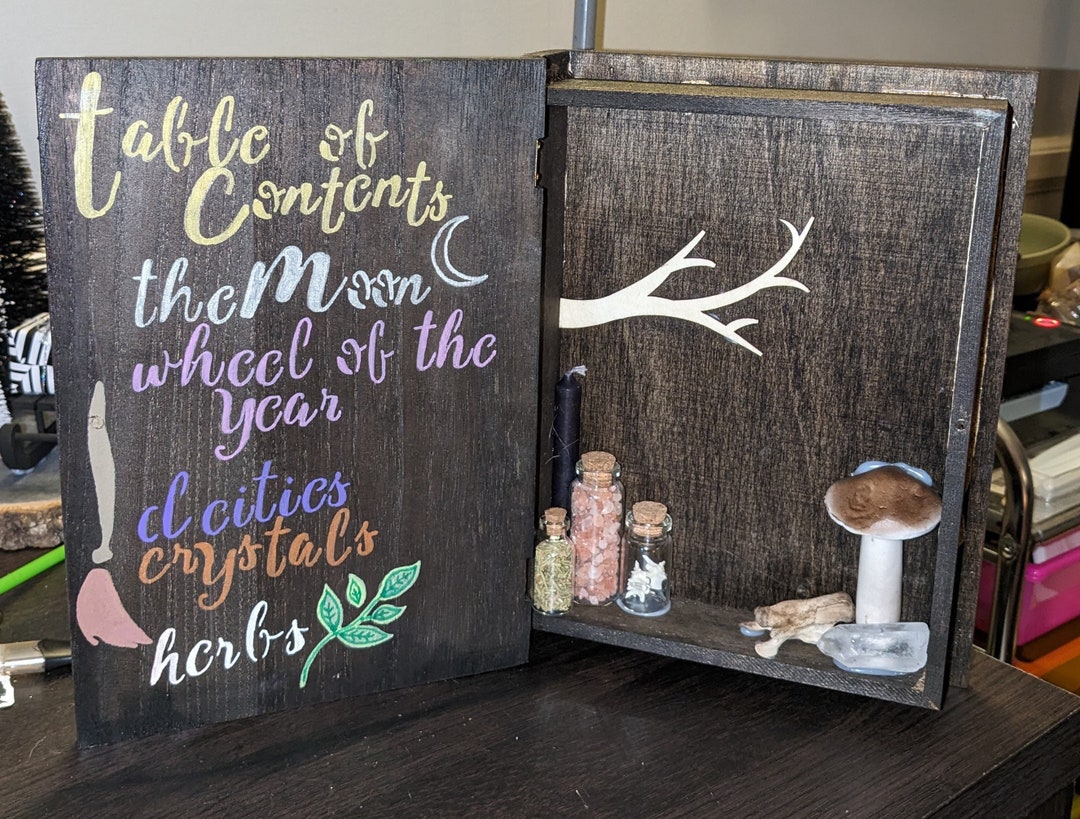 table of
Contents
the Moon
wheel of the
year
deities
crystals
herbs